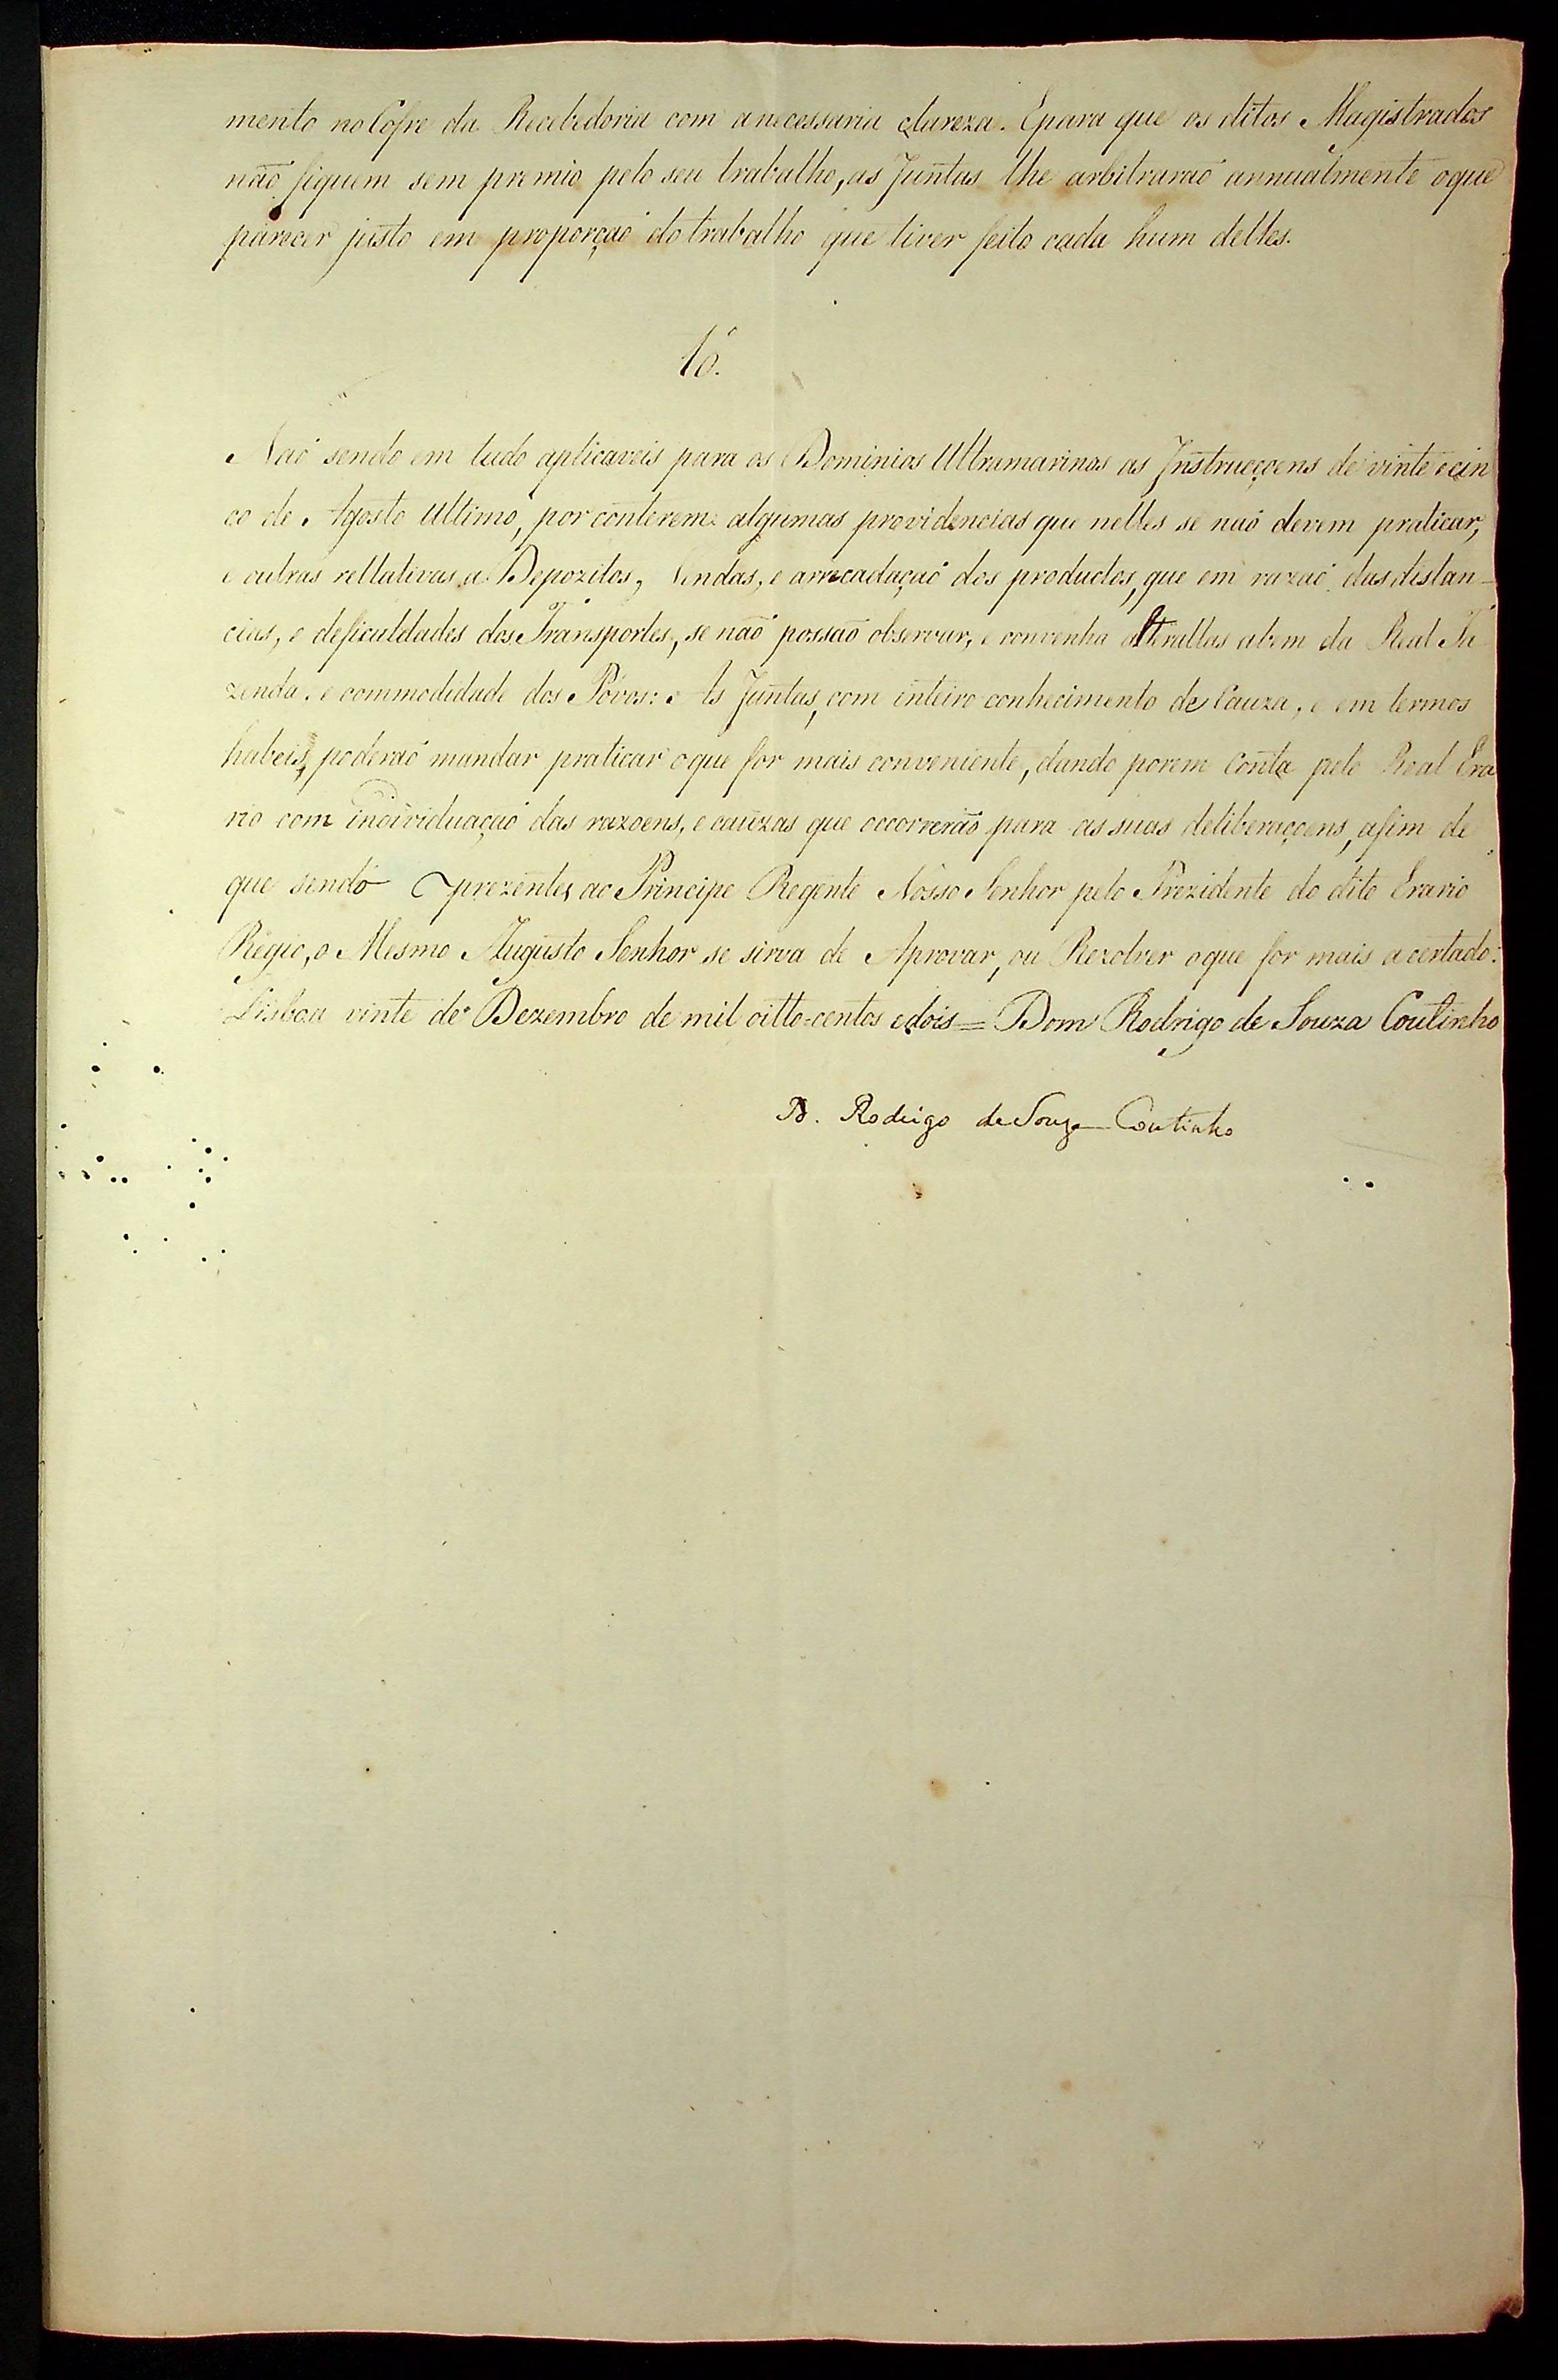 mento no Cofre da Recebedoria com a necessaria clareza. E para que os ditos Magistrados
não fiquem sem premio pelo seu trabalho, as Juntas lhe arbitraraõ annualmente o que
parecer justo em proporçaõ do trabalho que tiver feito cada hum delles.
16.
Naõ sendo em tudo aplicaveis para os Dominios Ultramarinos as Instrucçoens de vinte e cin
co de Agosto Ultimo, por conterem algumas providencias que nelles se naõ devem praticar,
e outras rellativas a Depozitos, Vendas, e arrecadaçaõ dos productos, que em razaõ das distan-
cias, e deficuldades dos Transportes, se naõ possaõ observar, e convenha alterallas abem da Real Fa
zenda, e commodidade dos Póvos: As Juntas, com inteiro conhecimento de Cauza, e em termos
habeis, poderaõ mandar praticar o que for mais conveniente, dando porem Conta pelo Real Era
rio com individuaçaõ das razoens, e cauzas que occorrerão para as suas deliberaçoens, afim de
que sendo prezentes ao Principe Regente Nosso Senhor pelo Prezidente do dito Erario
Regio, o Mesmo Augusto Senhor se sirva de Aprovar, ou Rezolver o que for mais acertado:
Lisboa vinte de Dezembro de mil oitto-centos e dois = Dom Rodrigo de Souza Coutinho
D. Rodrigo de Souza Coutinho